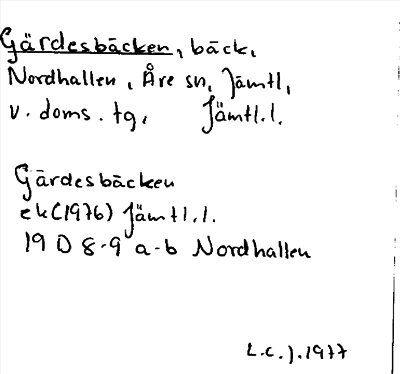 Gärdesbäcken, bäck,
Nordhallen, Åre sn, Jämtl,
v. doms. tg, Jämtl.l.
Gärdesbäcken
ek (1976) Jämtl.l.
19 D 8-9 a-b Nordhallen
L.C.J. 1977